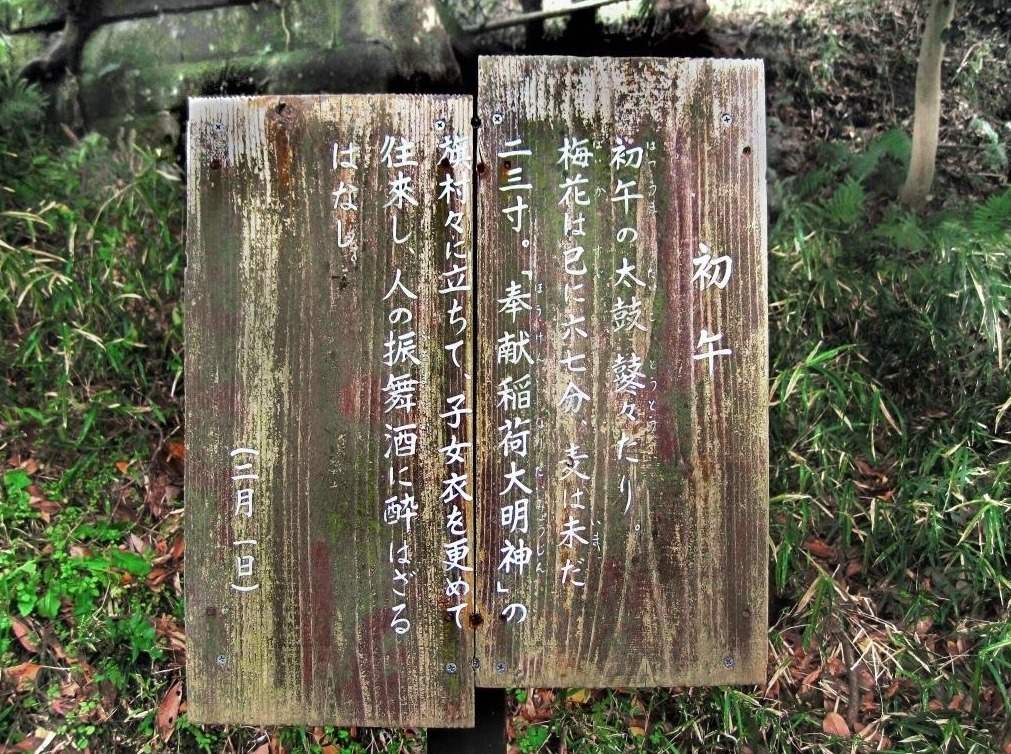 初午
初午の太鼓鼕々たり。
梅花は已に六七分、麦は未だ
二三寸。「奉献稲荷大明神」の
旗村々に立ちて、子女衣を更めて
往来し、人の振舞酒に酔はざる
はなし。
（二月一日）